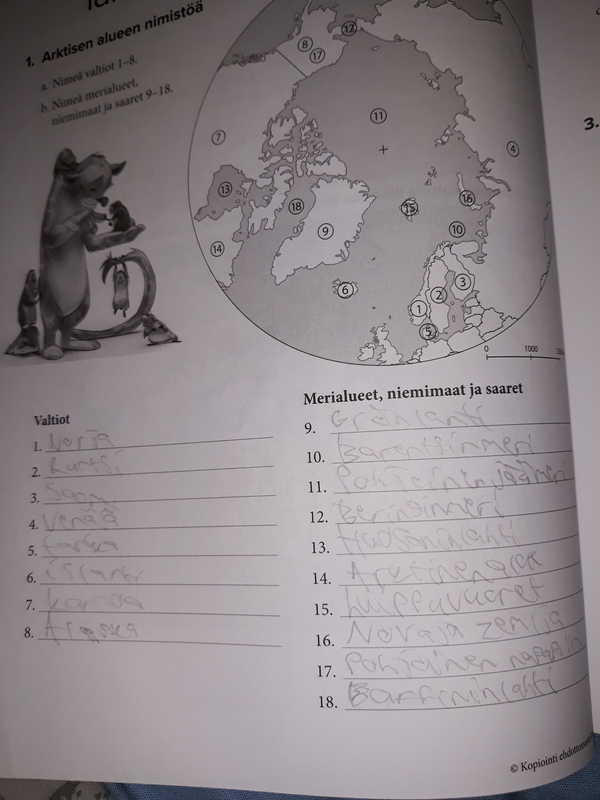 1. Arktisen alueen nimistöä
a. Nimeä valtiot 1–8.
b. Nimeä merialueet,
niemimaat ja saaret 9–18.
3.
8
17
12
11
7
4
13
18
15
16
9
10
14
6
3
2
1
5
0 1000
Valtiot
1. Norja
2. Ruotsi
3. Suomi
4. Venäjä
5. Tanska
6. islanti
7. kanada
8. Alaska
Merialueet, niemimaat ja saaret
9. Grönlanti
10. Barentsinmeri
11. Pohjoinen jäämeri
12. Beringinmeri
13. Hudsoninlahti
14.
15. huippuvuoret
16. Novaja zemlja
17. Pohjoinen napapiiri
18. Baffininlahti
© Kopiointi